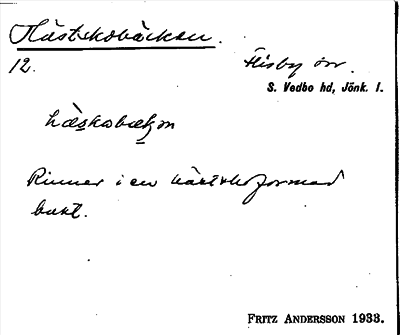 Hästskobäcken.
12.
Flisby sn.
S. Vedbo hd, Jönk. l.
hæskobækən
Rinner i en hästskoformad
bukt.
FRITZ ANDERSSON 1933.